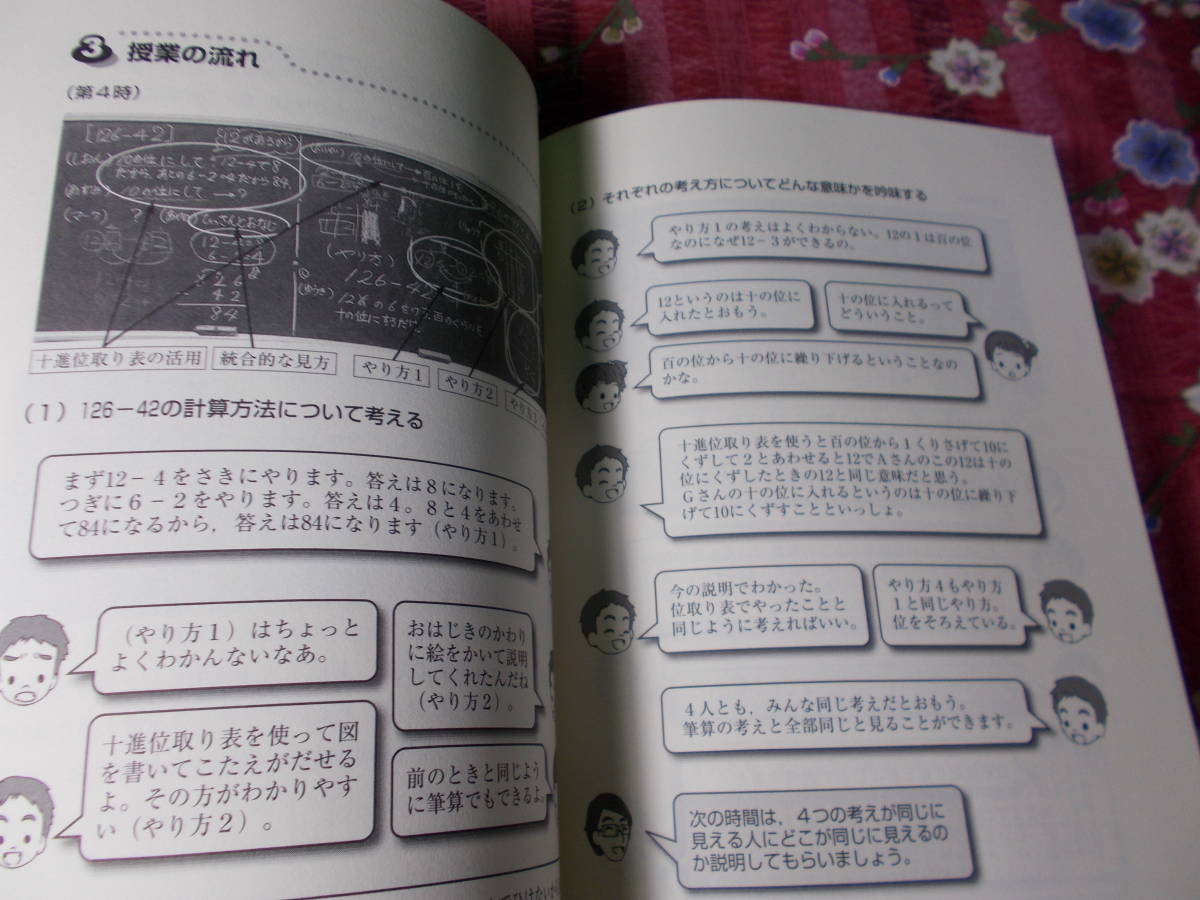 3 授業の流れ
(第4時)
[126-42]
12があるから
10の位にして
12-4で8
だから、あとの6-2=4だから84
10の位にして → ?
(マーク) ?
12-4=8
6-2=4
126
- 42
84
(やり方)
126-42
十の位にするだけ
十進位取り表の活用
統合的な見方
やり方1
やり方2
(1) 126-42の計算方法について考える
まず12-4をさきにやります。答えは8になります。
つぎに6-2をやります。答えは4。8と4をあわせ
て84になるから,答えは84になります(やり方1)。
(やり方1)はちょっと
よくわかんないなあ。
おはじきのかわり
に絵をかいて説明
してくれたんだね
(やり方2)。
十進位取り表を使って図
を書いてこたえがだせる
よ。その方がわかりやす
い(やり方2)。
前のときと同じよう
に筆算でもできるよ。
(2) それぞれの考え方についてどんな意味かを吟味する
やり方1の考えはよくわからない。12の1は百の位
なのになぜ12-3ができるの。
12というのは十の位に
入れたとおもう。
十の位に入れるって
どういうこと。
百の位から十の位に繰り下げるということなの
かな。
十進位取り表を使うと百の位から1くりさげて10に
くずして2とあわせると12でAさんのこの12は十の
位にくずしたときの12と同じ意味だと思う。
Gさんの十の位に入れるというのは十の位に繰り下
げて10にくずすことといっしょ。
今の説明でわかった。
位取り表でやったことと
同じように考えればいい。
やり方4もやり方
1と同じやり方。
位をそろえている。
4人とも,みんな同じ考えだとおもう。
筆算の考えと全部同じと見ることができます。
次の時間は,4つの考えが同じに
見える人にどこが同じに見えるの
か説明してもらいましょう。